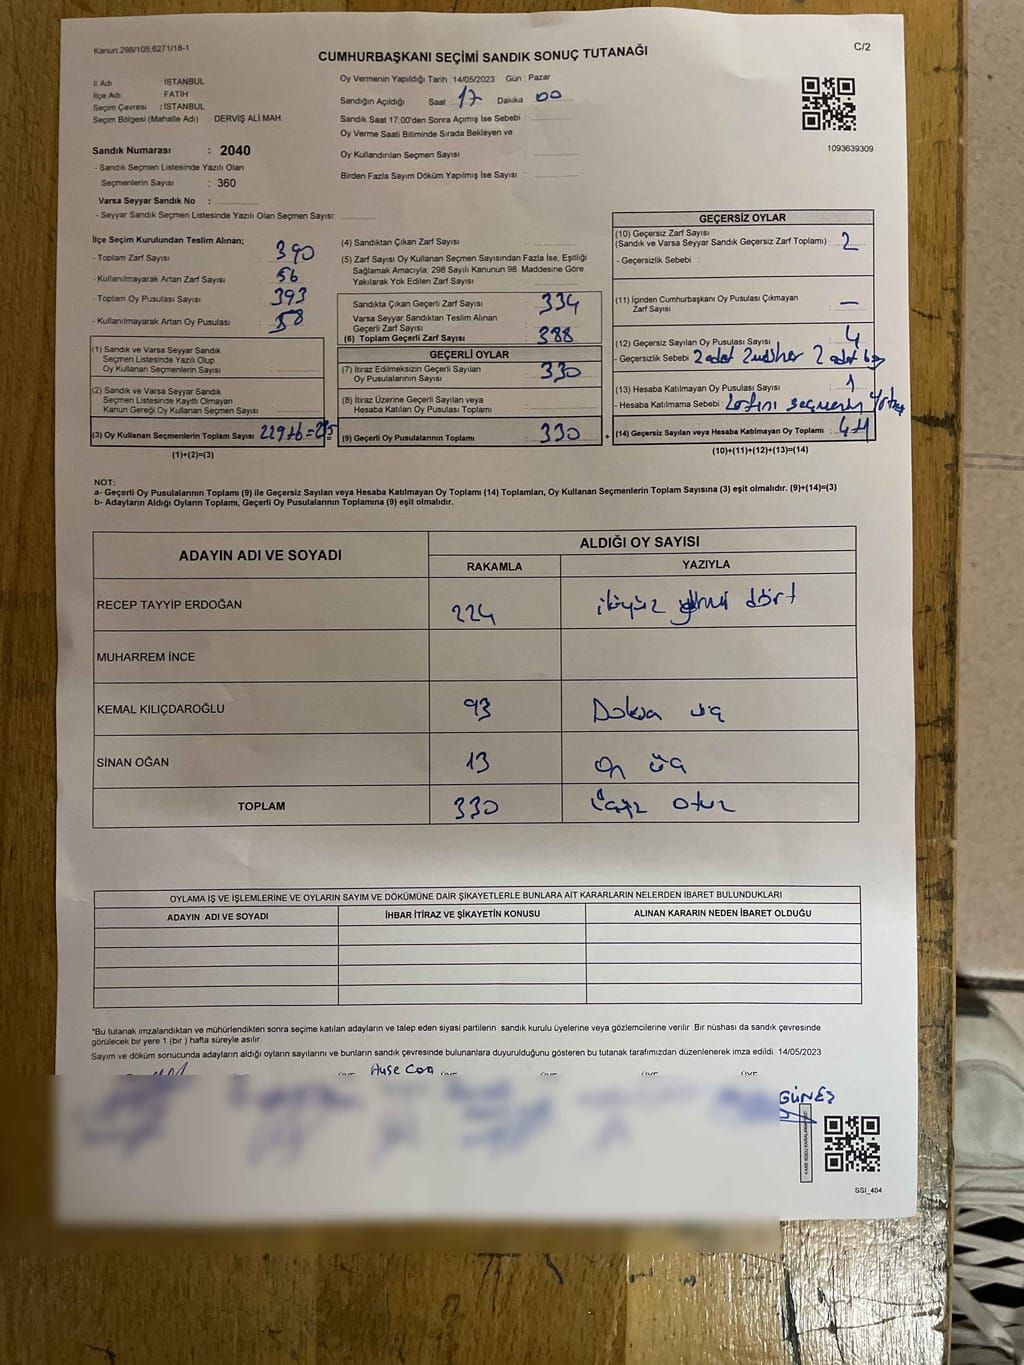 Kanun:298/105:6271/18-1
CUMHURBAŞKANI SEÇİMİ SANDIK SONUÇ TUTANAĞI
C/2
İl Adı : İSTANBUL
İlçe Adı : FATİH
Seçim Çevresi : İSTANBUL
Seçim Bölgesi (Mahalle Adı) : DERVİŞ ALİ MAH.
Sandık Numarası : 2040
- Sandık Seçmen Listesinde Yazılı Olan
Seçmenlerin Sayısı : 360
Varsa Seyyar Sandık No :
- Seyyar Sandık Seçmen Listesinde Yazılı Olan Seçmen Sayısı:
Oy Vermenin Yapıldığı Tarih :14/05/2023 Gün : Pazar
Sandığın Açıldığı Saat : 17 Dakika : 00
Sandık Saat 17:00'den Sonra Açımış İse Sebebi :
Oy Verme Saati Bitiminde Sırada Bekleyen ve
Oy Kullandırılan Seçmen Sayısı :
Birden Fazla Sayım Döküm Yapılmış İse Sayısı :
1093639309
İlçe Seçim Kurulundan Teslim Alınan;
- Toplam Zarf Sayısı : 390
- Kullanılmayarak Artan Zarf Sayısı : 56
- Toplam Oy Pusulası Sayısı : 393
- Kullanılmayarak Artan Oy Pusulası : 58
(1) Sandık ve Varsa Seyyar Sandık
Seçmen Listesinde Yazılı Olup
Oy Kullanan Seçmenlerin Sayısı :
(2) Sandık ve Varsa Seyyar Sandık
Seçmen Listesinde Kayıtlı Olmayan
Kanun Gereği Oy Kullanan Seçmen Sayısı :
(3) Oy Kullanan Seçmenlerin Toplam Sayısı :
(1)+(2)=(3)
(4) Sandıktan Çıkan Zarf Sayısı :
(5) Zarf Sayısı Oy Kullanan Seçmen Sayısından Fazla İse, Eşitliği
Sağlamak Amacıyla; 298 Sayılı Kanunun 98. Maddesine Göre
Yakılarak Yok Edilen Zarf Sayısı :
Sandıkta Çıkan Geçerli Zarf Sayısı : 334
Varsa Seyyar Sandıktan Teslim Alınan
Geçerli Zarf Sayısı :
(6) Toplam Geçerli Zarf Sayısı : 388
GEÇERLİ OYLAR
(7) İtiraz Edilmeksizin Geçerli Sayılan
Oy Pusulalarının Sayısı : 330
(8) İtiraz Üzerine Geçerli Sayılan veya
Hesaba Katılan Oy Pusulası Toplamı :
(9) Geçerli Oy Pusulalarının Toplamı : 330 +
GEÇERSİZ OYLAR
(10) Geçersiz Zarf Sayısı
(Sandık ve Varsa Seyyar Sandık Geçersiz Zarf Toplamı) : 2
- Geçersizlik Sebebi :
(11) İçinden Cumhurbaşkanı Oy Pusulası Çıkmayan
Zarf Sayısı : —
(12) Geçersiz Sayılan Oy Pusulası Sayısı : 4
- Geçersizlik Sebebi : 2 adet 2 adet
(13) Hesaba Katılmayan Oy Pusulası Sayısı : 1
- Hesaba Katılmama Sebebi :
(14) Geçersiz Sayılan veya Hesaba Katılmayan Oy Toplamı :
(10)+(11)+(12)+(13)=(14)
NOT:
a- Geçerli Oy Pusulalarının Toplamı (9) ile Geçersiz Sayılan veya Hesaba Katılmayan Oy Toplamı (14) Toplamları, Oy Kullanan Seçmenlerin Toplam Sayısına (3) eşit olmalıdır. (9)+(14)=(3)
b- Adayların Aldığı Oyların Toplamı, Geçerli Oy Pusulalarının Toplamına (9) eşit olmalıdır.
ADAYIN ADI VE SOYADI ALDIĞI OY SAYISI
RAKAMLA YAZIYLA
RECEP TAYYİP ERDOĞAN 224 ikiyüz yirmi dört
MUHARREM İNCE
KEMAL KILIÇDAROĞLU 93 Doksa üç
SİNAN OĞAN 13 on üç
TOPLAM 330 üçyüz otuz
OYLAMA İŞ VE İŞLEMLERİNE VE OYLARIN SAYIM VE DÖKÜMÜNE DAİR ŞİKAYETLERLE BUNLARA AİT KARARLARIN NELERDEN İBARET BULUNDUKLARI
ADAYIN ADI VE SOYADI İHBAR İTİRAZ VE ŞİKAYETİN KONUSU ALINAN KARARIN NEDEN İBARET OLDUĞU
*Bu tutanak imzalandıktan ve mühürlendikten sonra seçime katılan adayların ve talep eden siyasi partilerin sandık kurulu üyelerine veya gözlemcilerine verilir. Bir nüshası da sandık çevresinde
görülecek bir yere 1 (bir) hafta süreyle asılır.
Sayım ve döküm sonucunda adayların aldığı oyların sayılarını ve bunların sandık çevresinde bulunanlara duyurulduğunu gösteren bu tutanak tarafımızdan düzenlenerek imza edildi. 14/05/2023
GÜNEŞ
SSİ_404